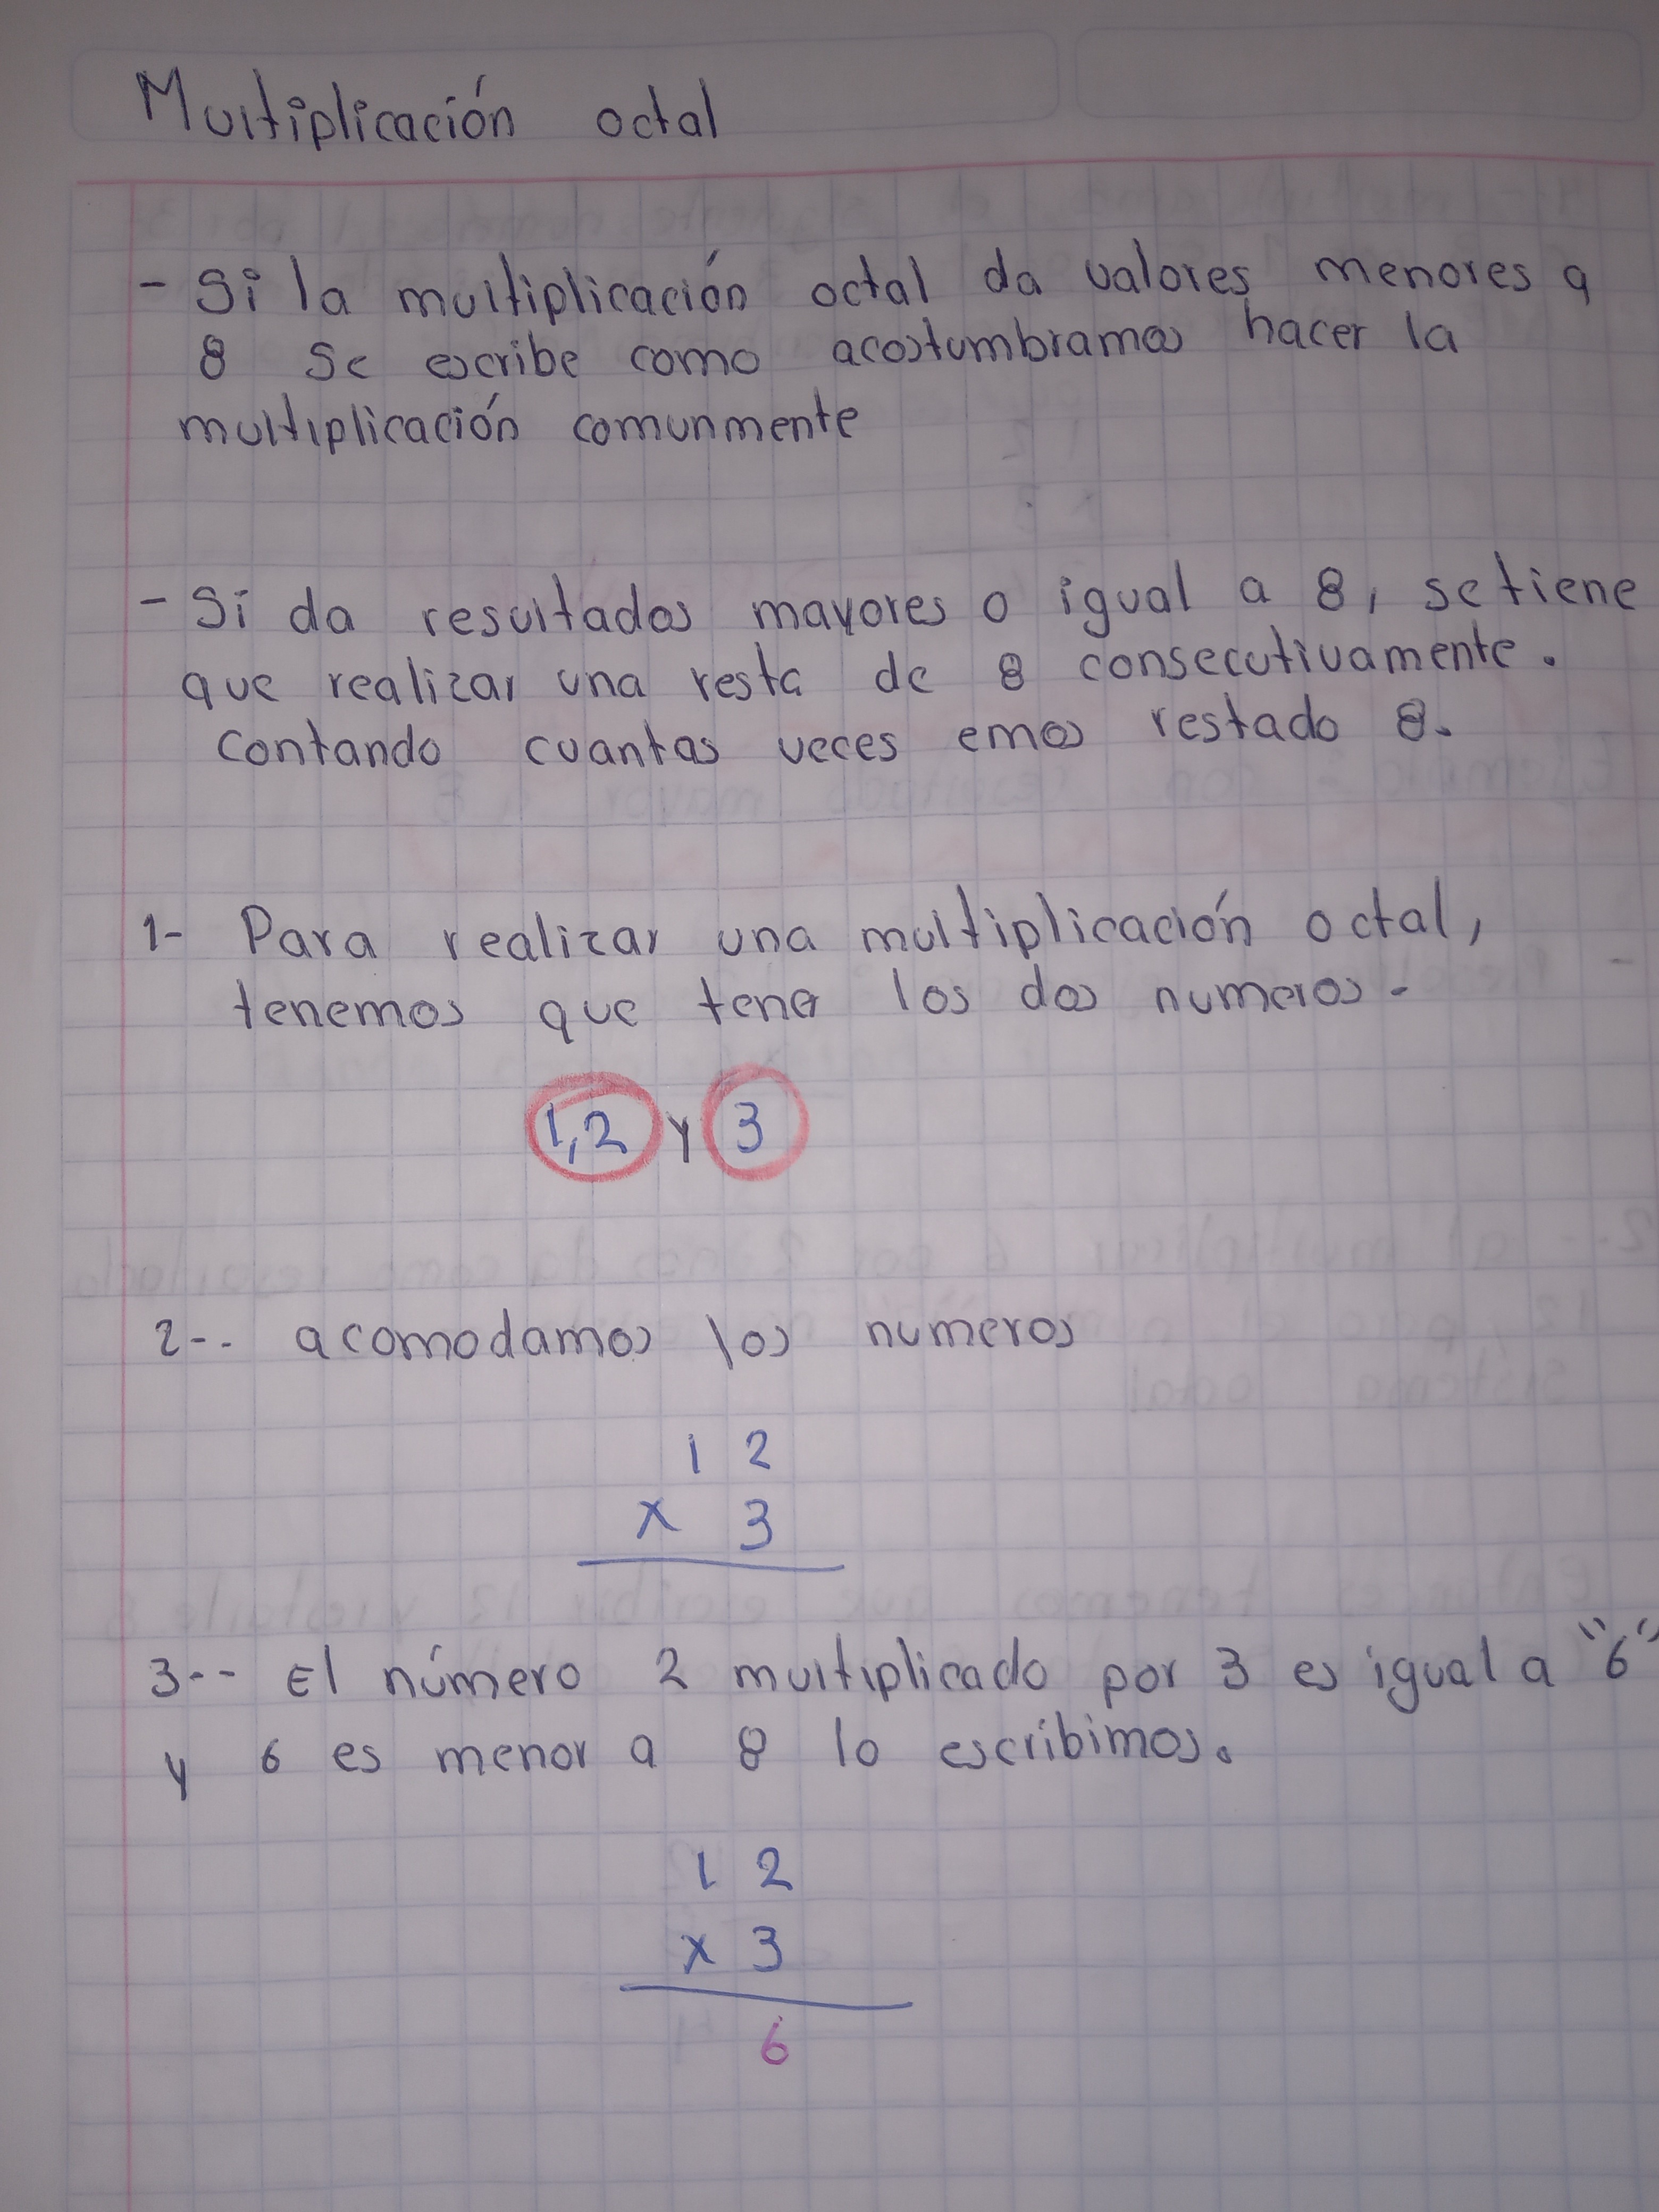 Multiplicación octal
- Si la multiplicación octal da valores menores a
8 se escribe como acostumbramos hacer la
multiplicación comunmente
- Si da resultados mayores o igual a 8, se tiene
que realizar una resta de 8 consecutivamente.
Contando cuantas veces emos restado 8.
1- Para realizar una multiplicación octal,
tenemos que tener los dos numeros.
1,2 y 3
2-. acomodamos los numeros
1 2
x 3
3-- El número 2 multiplicado por 3 es igual a "6"
y 6 es menor a 8 lo escribimos.
1 2
x 3
6